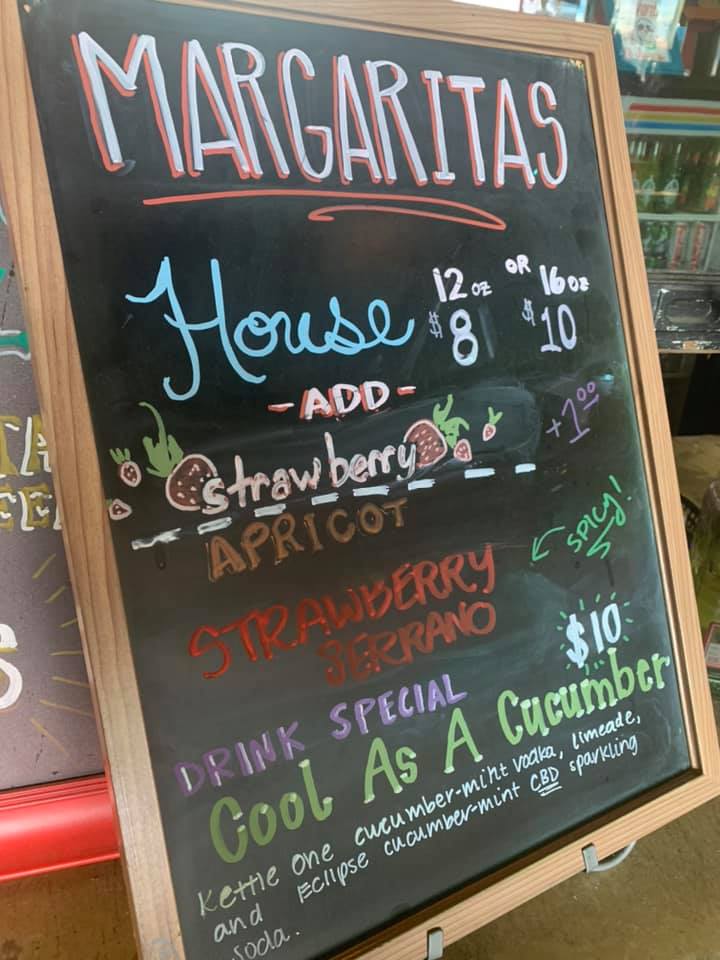 MARGARITAS
House 12 oz OR 16 oz
$8 $10
- ADD -
strawberry +1.00
APRICOT
STRAWBERRY ← SPICY!
SERRANO
$10
DRINK SPECIAL
Cool As A Cucumber
Kettle One cucumber-mint vodka, limeade,
and Eclipse cucumber-mint CBD sparkling
soda.